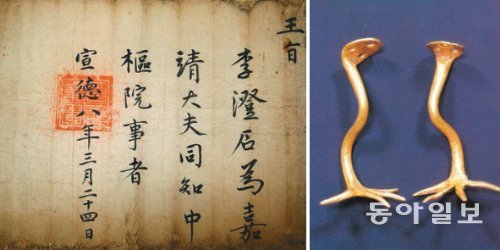 王旨
李澄石為嘉
靖大夫同知中
樞院事者
宣德八年三月二十四日
동아일보